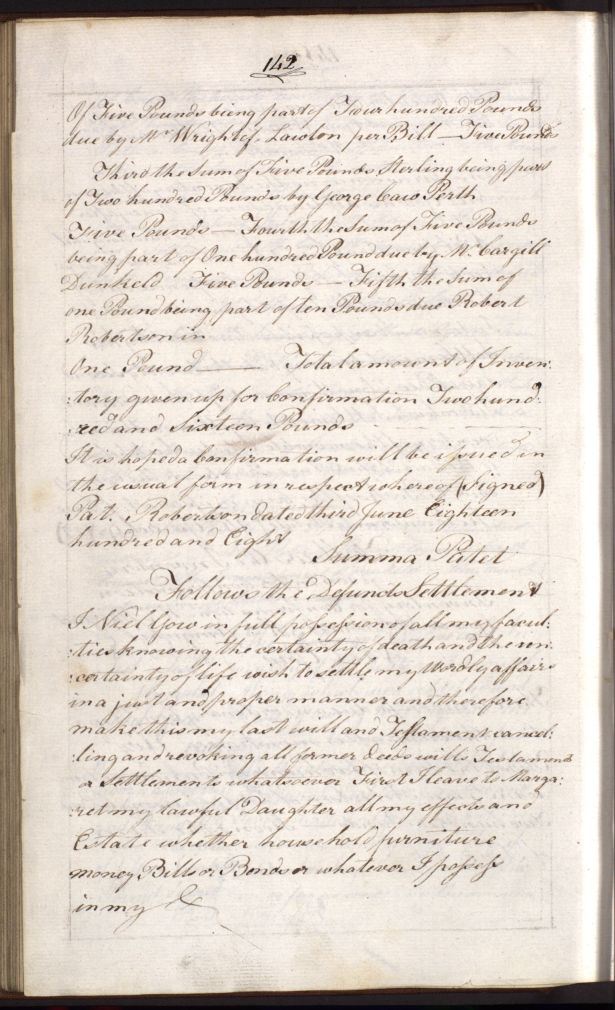 142
Of Five Pounds being part of Four hundred Pounds
due by Mr Wright of Lawton per Bill — Five Pounds
Third the sum of Five Pounds Sterling being part
of Two hundred Pounds by George Caw Perth
Five Pounds — Fourth the sum of Five Pounds
being part of One hundred Pound due by Mr Cargill
Dunkeld Five Pounds — Fifth the sum of
one Pound being part of ten Pounds due Robert
Robertson in
One Pound — Total amount of Inven:
:tory given up for Confirmation Two hund:
:red and Sixteen Pounds
It is hoped a Confirmation will be issued in
the usual form in respect whereof (Signed)
Pat. Robertson Dated third June Eighteen
hundred and Eight
Summa Patet
Follows the Defunds Settlement
I Niel Gow in full possession of all my facul:
:ties knowing the certainty of death and the un:
:certainty of life wish to settle my Wordly affairs
in a just and proper manner and therefore
make this my last will and Testament cancel:
:ling and revoking all former deeds wills Testaments
or Settlements whatsoever First I leave to Marga:
:ret my lawful Daughter all my effects and
Estate whether household furniture
money Bills or Bonds or whatever I possess
in my